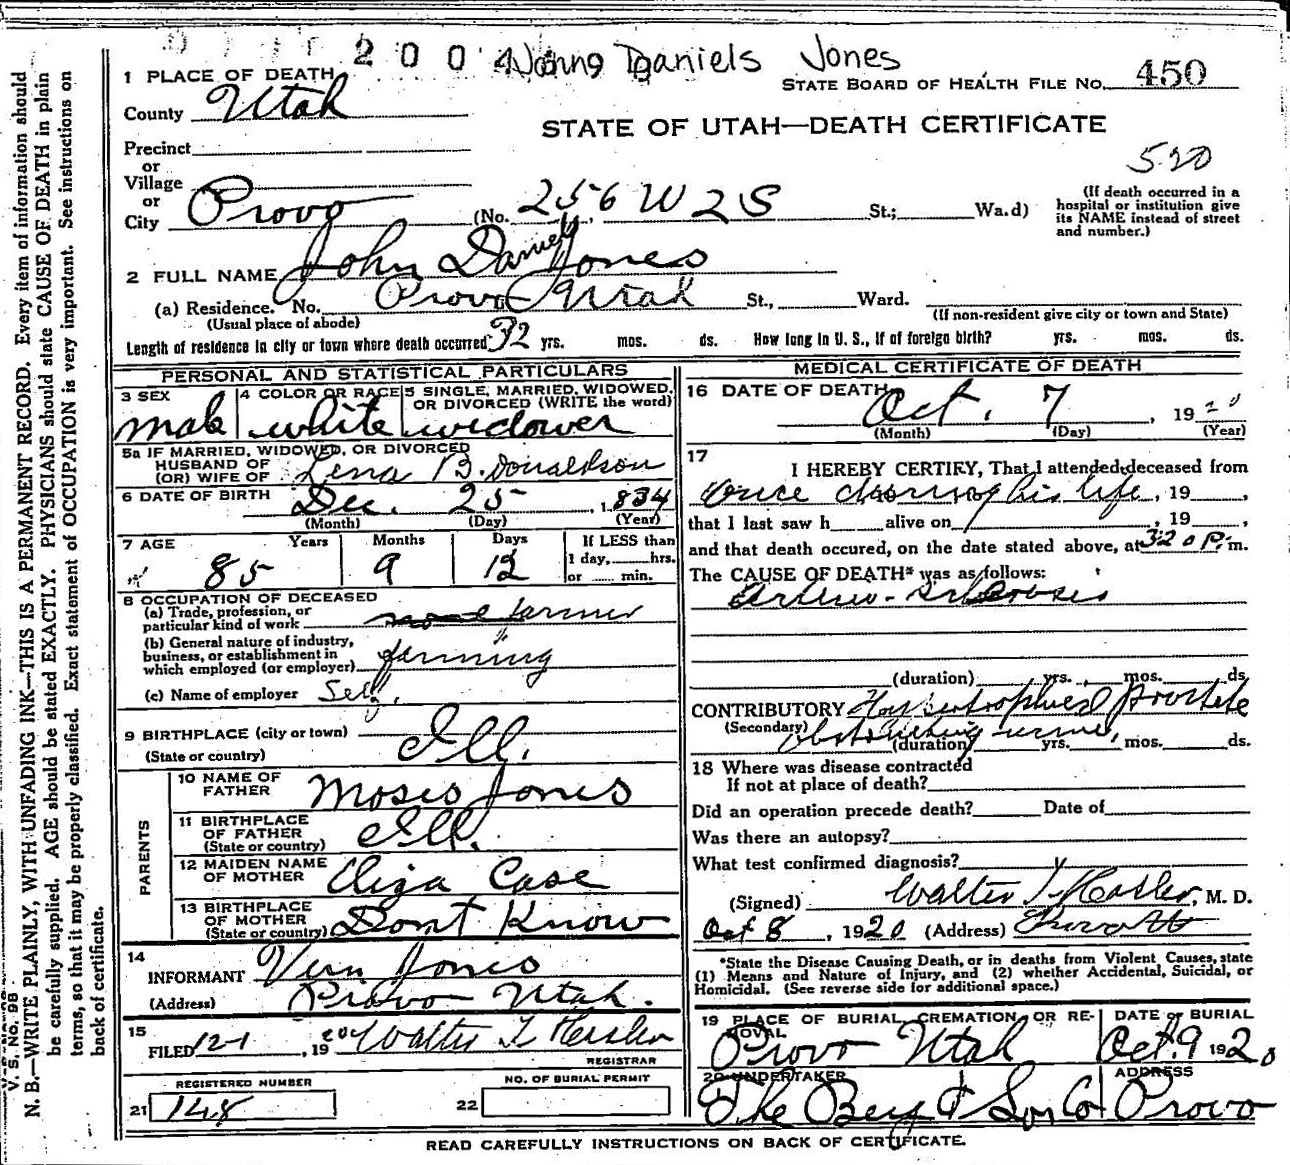 2004
John Daniels Jones
1 PLACE OF DEATH
STATE BOARD OF HEALTH FILE NO. 450
County Utah
STATE OF UTAH—DEATH CERTIFICATE
Precinct
or
Village
or
City Provo (No. 256 W 2 S St.; Ward)
520
(If death occurred in a
hospital or institution give
its NAME instead of street
and number.)
2 FULL NAME John Daniels Jones
(a) Residence. No. Provo Utah St., Ward.
(Usual place of abode) (If non-resident give city or town and State)
Length of residence in city or town where death occurred 32 yrs. mos. ds. How long in U. S., if of foreign birth? yrs. mos. ds.
PERSONAL AND STATISTICAL PARTICULARS
3 SEX
male
4 COLOR OR RACE
white
5 SINGLE, MARRIED, WIDOWED,
OR DIVORCED (WRITE the word)
widower
5a IF MARRIED, WIDOWED, OR DIVORCED
HUSBAND OF
(OR) WIFE OF Lena B. Donaldson
6 DATE OF BIRTH Dec. 25, 1834
(Month) (Day) (Year)
7 AGE Years Months Days If LESS than
1 day, hrs.
or min.
85 9 12
8 OCCUPATION OF DECEASED
(a) Trade, profession, or
particular kind of work farmer
(b) General nature of industry,
business, or establishment in
which employed (or employer) farming
(c) Name of employer Self.
9 BIRTHPLACE (city or town)
(State or country) Ill.
PARENTS
10 NAME OF
FATHER Moses Jones
11 BIRTHPLACE
OF FATHER
(State or country) Ill.
12 MAIDEN NAME
OF MOTHER Eliza Case
13 BIRTHPLACE
OF MOTHER
(State or country) Dont Know
14
INFORMANT Vern Jones
(Address) Provo Utah.
15
FILED 12-1, 1920 Walter T Hasler
REGISTRAR
REGISTERED NUMBER
21 148
NO. OF BURIAL PERMIT
22
MEDICAL CERTIFICATE OF DEATH
16 DATE OF DEATH
Oct. 7, 1920
(Month) (Day) (Year)
17
I HEREBY CERTIFY, That I attended deceased from
once during his life, 19,
that I last saw h alive on, 19,
and that death occured, on the date stated above, at 3:20 P. m.
The CAUSE OF DEATH* was as follows:
Arterio-Sclerosis
(duration) yrs. mos. ds.
CONTRIBUTORY Hypertrophied prostate
(Secondary) obstructing urine,
(duration) yrs. mos. ds.
18 Where was disease contracted
If not at place of death?
Did an operation precede death? Date of
Was there an autopsy?
What test confirmed diagnosis?
(Signed) Walter T Hasler, M. D.
Oct 8, 1920 (Address) Provo Ut
*State the Disease Causing Death, or in deaths from Violent Causes, state
(1) Means and Nature of Injury, and (2) whether Accidental, Suicidal, or
Homicidal. (See reverse side for additional space.)
19 PLACE OF BURIAL, CREMATION, OR RE-
MOVAL
Provo Utah
DATE of BURIAL
Oct. 9 1920
20 UNDERTAKER
The Berg & Son Co
ADDRESS
Provo
READ CAREFULLY INSTRUCTIONS ON BACK OF CERTIFICATE.
V. S. No. 98
N. B.—WRITE PLAINLY, WITH UNFADING INK—THIS IS A PERMANENT RECORD. Every item of information should
be carefully supplied. AGE should be stated EXACTLY. PHYSICIANS should state CAUSE OF DEATH in plain
terms, so that it may be properly classified. Exact statement of OCCUPATION is very important. See instructions on
back of certificate.